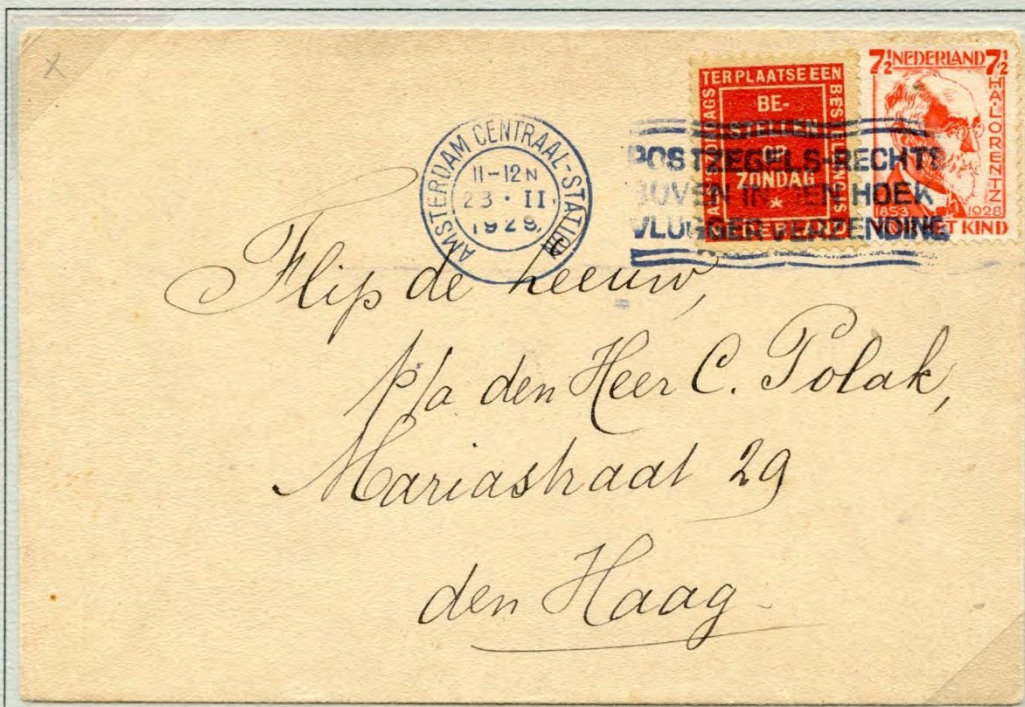 X
AMSTERDAM CENTRAAL-STATION
11-12N
23·II
1929
TER PLAATSE EEN
BE-
STELLEN
OP
ZONDAG
*
7½ NEDERLAND 7½
H.A. LORENTZ
1853 1928
KIND
POSTZEGELS-RECHTS
BOVEN IN DEN HOEK
VLUGGER VERZENDING
Flip de Leeuw,
p/a den Heer C. Polak,
Mariastraat 29
den Haag